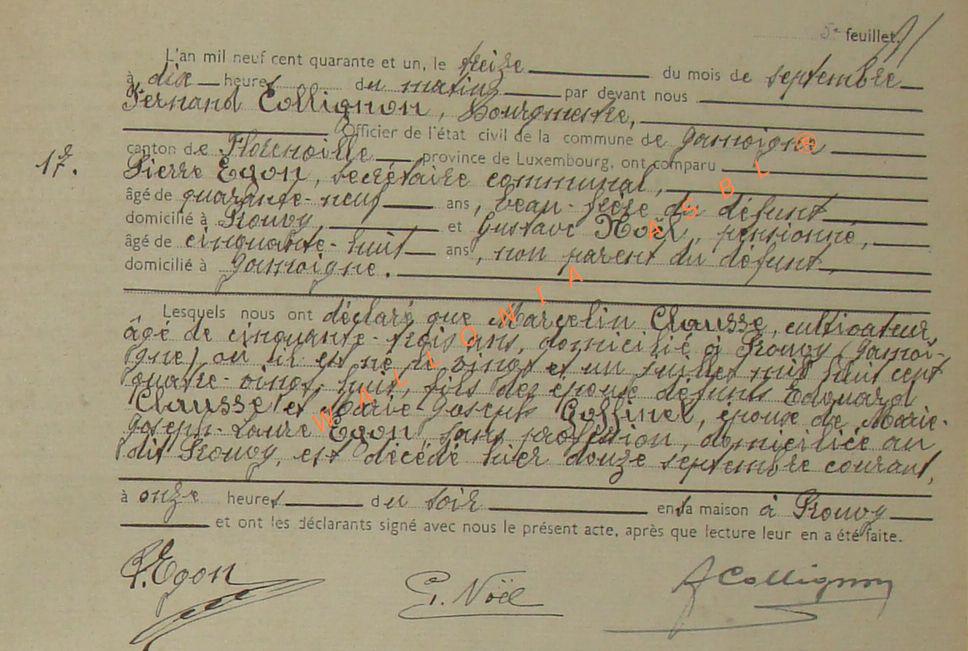 5e feuillet.
L'an mil neuf cent quarante et un, le treize du mois de septembre
à dix heures du matin par devant nous
Fernand Collignon, Bourgmestre,
Officier de l'état civil de la commune de Jamoigne
canton de Florenville province de Luxembourg, ont comparu
17.
Pierre Egon, secrétaire communal,
âgé de quarante-neuf ans, beau-frère du défunt
domicilié à Prouvy et Gustave Noël, pensionné,
âgé de cinquante-huit ans, non parent du défunt,
domicilié à Jamoigne.
Lesquels nous ont déclaré que Marcelin Clausse, cultivateur,
âgé de cinquante-trois ans, domicilié à Prouvy (Jamoi-
gne) où il est né le vingt et un juillet mil huit cent
quatre-vingt-huit, fils des époux défunts Edouard
Clausse et Marie-Joseph Goffinet, époux de Marie-
Joseph-Laure Egon, sans profession, domiciliée au
dit Prouvy, est décédé hier douze septembre courant,
à onze heures du soir en sa maison à Prouvy
et ont les déclarants signé avec nous le présent acte, après que lecture leur en a été faite.
P. Egon G. Noël F Collignon
WALLONIA ASBL ®